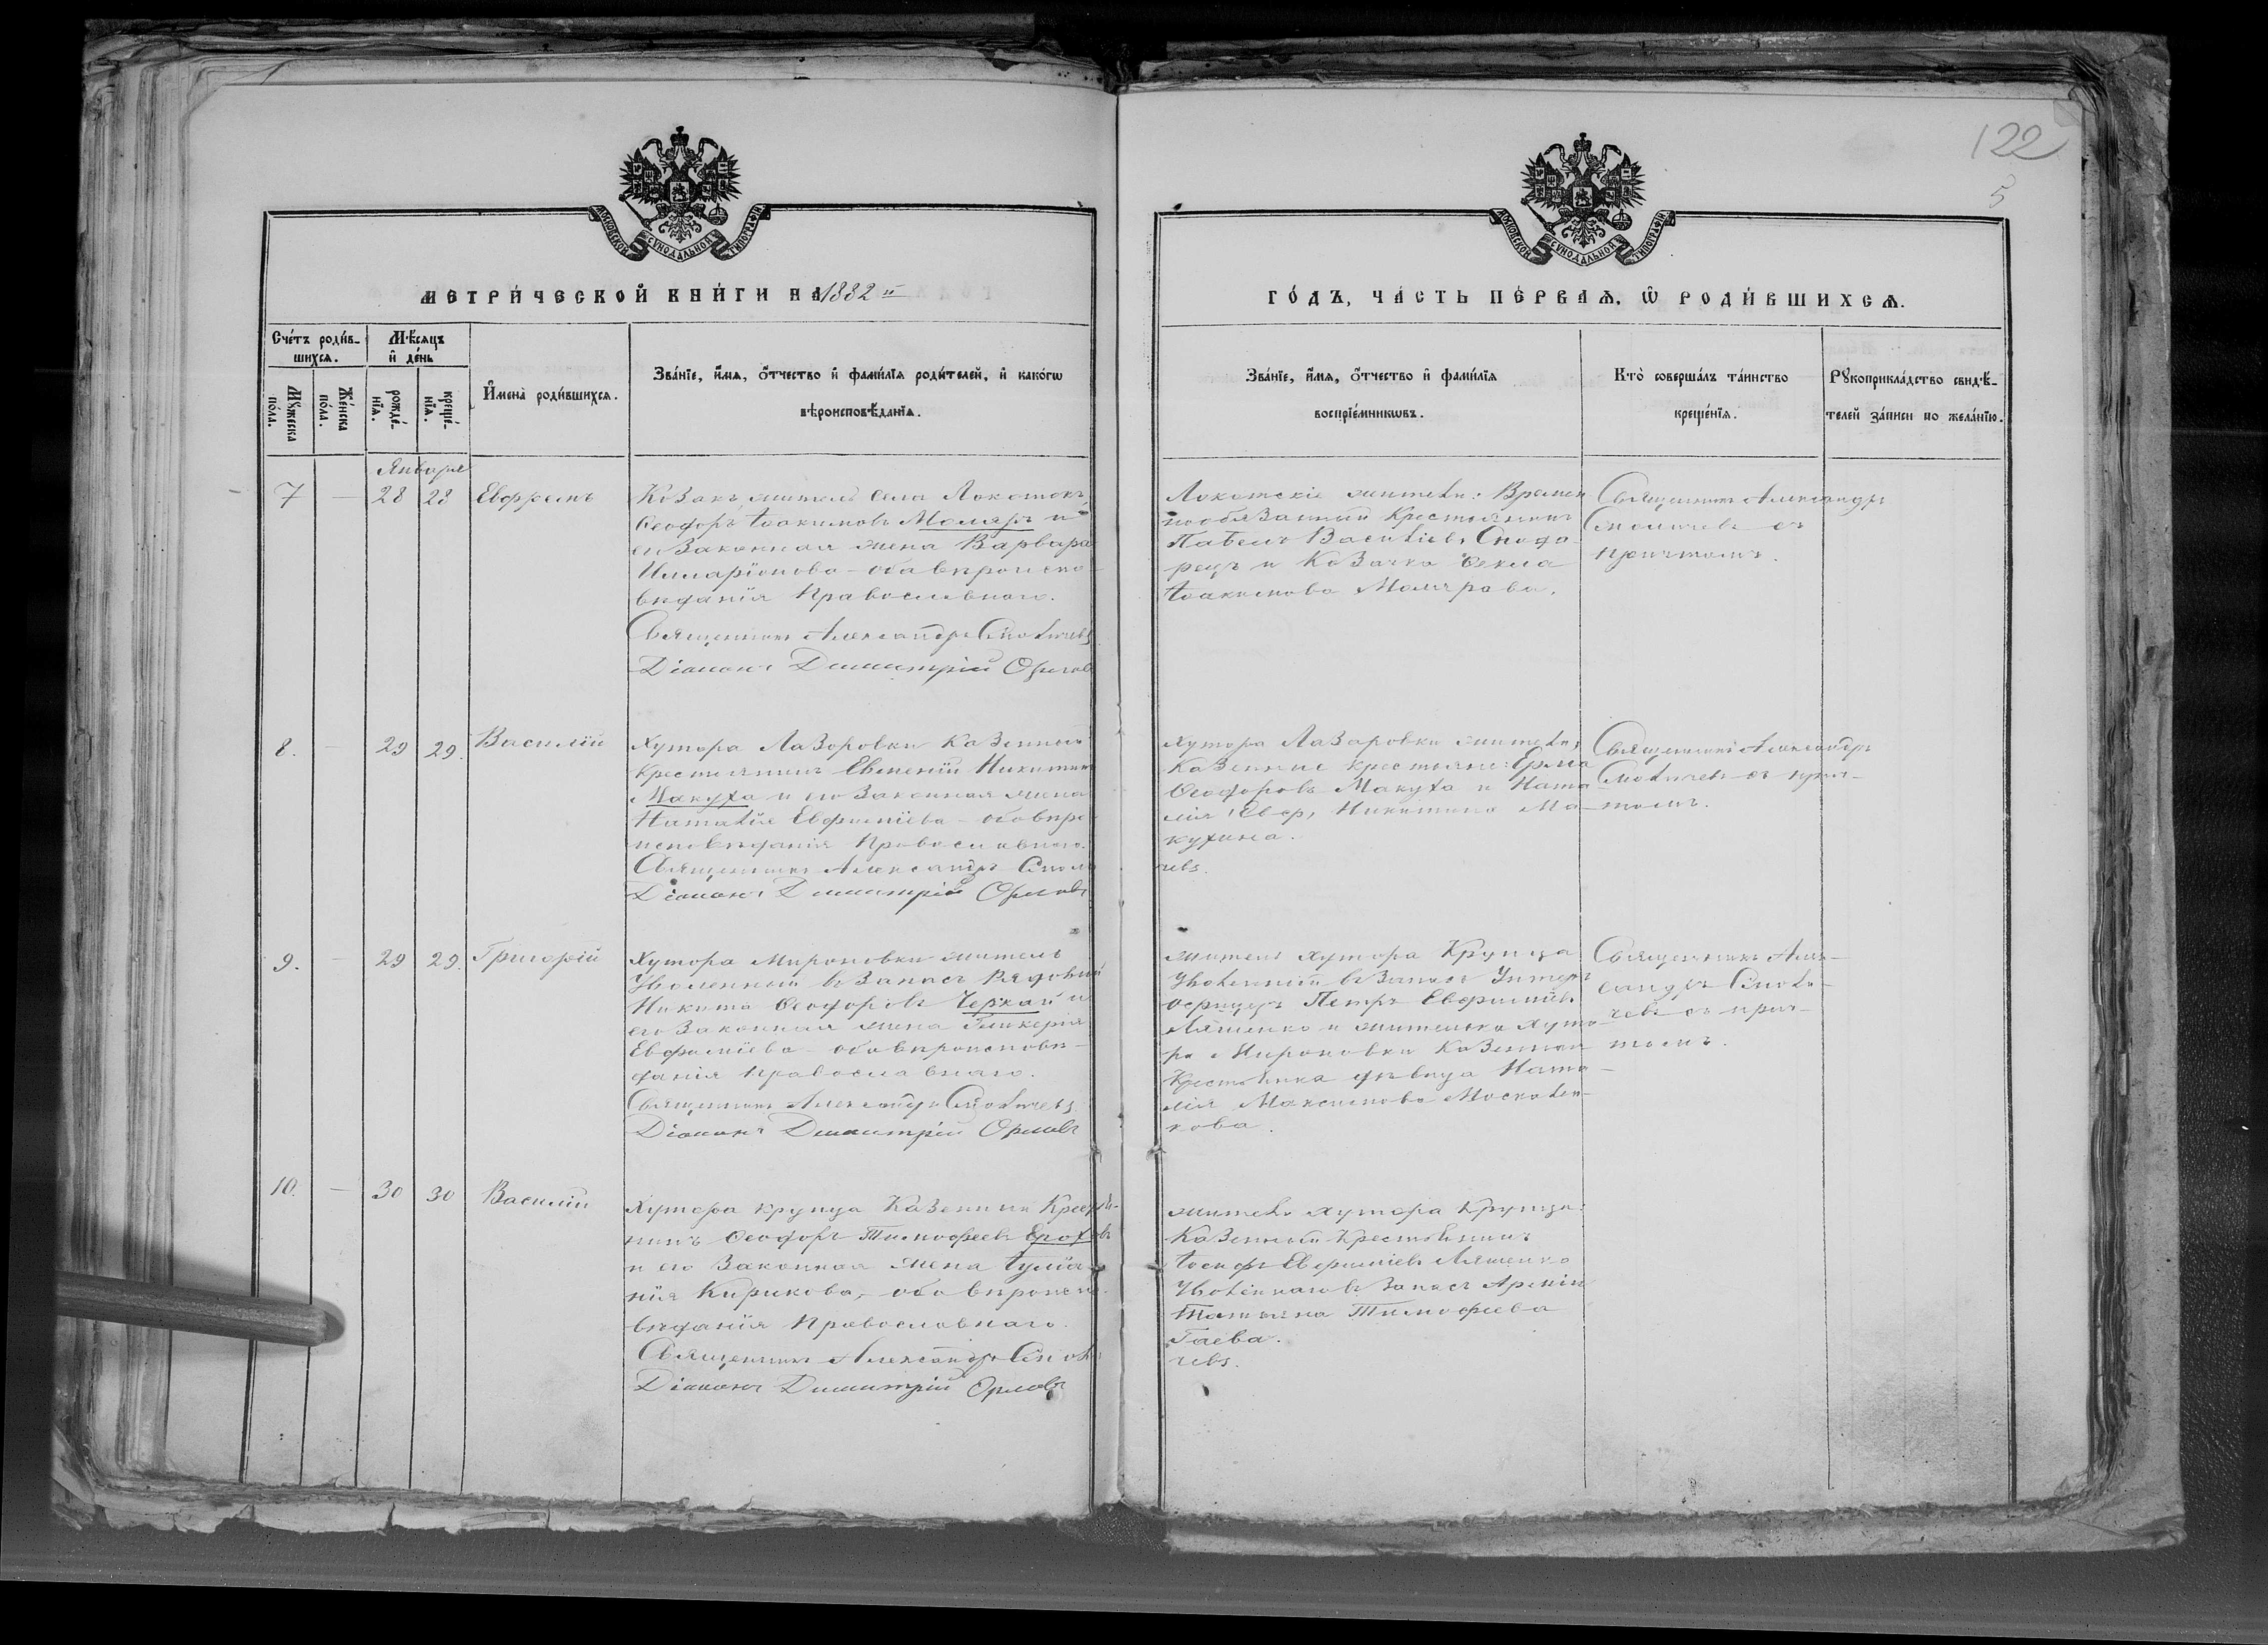 122
5
МОСКОВСКОЙ СѴНОДАЛЬНОЙ ТИПОГРАФІИ
МОСКОВСКОЙ СѴНОДАЛЬНОЙ ТИПОГРАФІИ
МЕТРИ́ЧЕСКОЙ КНИ́ГИ НА 1882 й
ГО́ДЪ, ЧА́СТЬ ПЕ́РВАѦ, Ѡ҆ РОДИ́ВШИХСѦ.
Сче́тъ роди́в-
шихсѧ.
Мꙋжеска по́ла.
Же́нска по́ла.
Мѣ́сѧцъ
и҆ де́нь
рожде́нїѧ.
креще́нїѧ.
И҆мена̀ роди́вшихсѧ.
Зва́нїе, и҆́мѧ, о҆́тчество и҆ фами́лїѧ роди́телей, и҆ како́гѡ
вѣроисповѣ́данїѧ.
Зва́нїе, и҆́мѧ, о҆́тчество и҆ фами́лїѧ
воспрїе́мникѡвъ.
Кто̀ соверша́лъ та́инство
креще́нїѧ.
Рꙋкоприкла́дство свидѣ́-
телей за́писи по жела́нїю.
Января
7 — 28 28 Ефремъ
Козакъ житель села Локотокъ
Ѳеодоръ Іоакимовъ Моляръ и
его законная жена Варвара
Илларіонова – оба вѣроиспо-
вѣданія Православнаго.
Священникъ Александръ Смоличевъ
Діаконъ Димитрій Орловъ
Локотскіе жители: Времен
нообязанный Крестьянинъ
Павелъ Васильевъ
рецъ и Козачка Ѳекла
Іоакимова Молярова.
Священникъ Александръ
Смоличевъ съ
причтомъ.
8. — 29 29. Василій
Хутора Лазоровки Казенный
крестьянинъ Евменій Никитинъ
Макуха и его законная жена
Наталія Евфиміева – оба вѣро
исповѣданія Православнаго.
Священникъ Александръ Смоли
Діаконъ Димитрій Орловъ
Хутора Лазаровки жители,
Казенные крестьяне: Ермо
Ѳеодоровъ Макуха и Ната
лія Никитина Ма-
кухина.
чевъ.
Священникъ Александръ
Смоличевъ съ прич-
томъ.
9. — 29 29. Григорій
Хутора Мироновки житель
Уволенный въ запасъ Рядовый
Никита Ѳеодоровъ Черкай и
его законная жена Гликерія
Евфиміева – оба вѣроисповѣ-
данія православнаго.
Священникъ Александръ Смоличевъ
Діаконъ Димитрій Орловъ
Житель хутора Крупца
Уволенный въ запасъ Унтеръ
офицеръ Петръ Евфиміевъ
Ляшенко и жителька хуто-
ра Мироновки Казенная
Крестьянка дѣвица Ната-
лія Максимова Москален-
кова.
Священникъ Алек-
сандръ Смоли-
чевъ съ прич-
томъ.
10. — 30 30 Василій
Хутора крупца Казенный Крестья-
нинъ Ѳеодоръ Тимофеевъ Ерохов
и его законная жена Іуліа-
нія Кирикова, оба вѣроиспо-
вѣданія Православнаго.
Священникъ Александръ Смоли
Діаконъ Димитрій Орловъ
жители хутора Крупца:
Казенный Крестьянинъ
Іосифъ Евфиміевъ Ляшенко
Уволеннаго въ запасъ Арміи
Татьяна Тимофеева
Гаева.
чевъ.